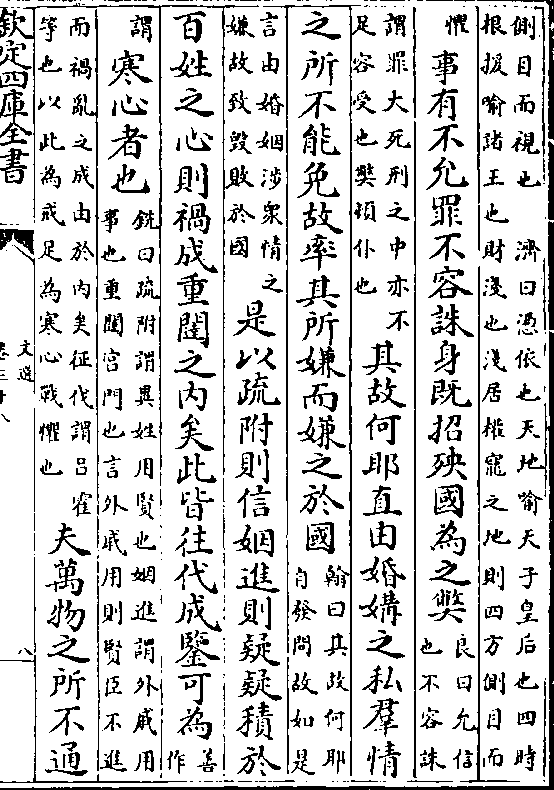 側目而視也　濟曰憑依也天地喻天子皇后也四時
根援喻諸王也財淺也淺居權寵之地則四方側目而
懼
事有不允罪不容誅身既招殃國為之獘
良曰允信
也不容誅
謂罪大死刑之中亦不
足容受也獘頓仆也
其故何耶直由婚媾之私羣情
之所不能免故率其所嫌而嫌之於國
翰曰其故何耶
自發問故如是
言由婚姻涉衆情之
嫌故致毀敗於國
是以疏附則信姻進則疑疑積於
百姓之心則禍成重閨之内矣此皆往代成鑒可為
善
作
謂
寒心者也
銑曰疏附謂異姓用賢也姻進謂外戚用
事也重闈宮門也言外戚用則賢臣不進
而禍亂之成由於内矣征伐謂呂霍
等也以此為戒足為寒心戰懼也
夫萬物之所不通
欽定四庫全書
文選
卷三十八
八